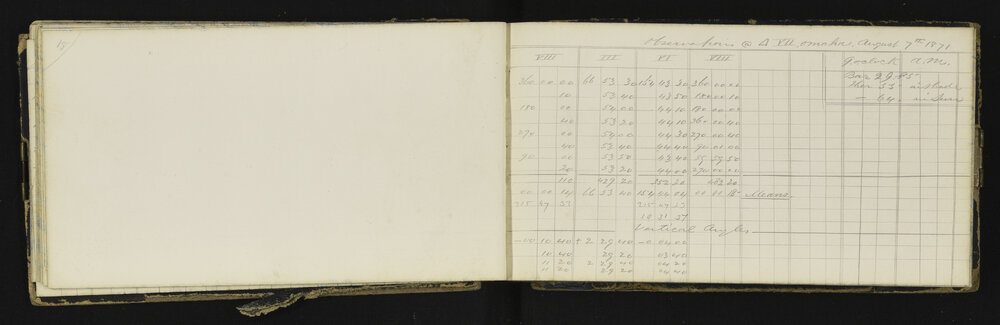 Observations @ Δ VII Omaha, August 7th 1871
VIII III VI VIII
9 oclock A.M.
Bar 29.85
Ther 53 in Shade
- 64. in Sun
360 00 00 66 53 30 154 43 30 360 00 00
10 53 40 43 50 180 00 10
180 00 54 00 44 10 180 00 00
40 53 20 44 10 360 00 40
270 00 54 00 44 30 270 00 40
40 53 40 44 40 90 01 00
90 00 53 50 43 40 89 59 50
20 53 20 44 00 270 00 00
110 429 20 352 20 482 20
00 00 14 66 53 40 154 44 04 00 00 18 Means.
215 47 33 215 47 33
10 31 37
Vertical Angles
-00 10 40 + 2 29 40 -0 04 00
10 40 29 20 03 40
11 20 2 29 40 04 20
11 20 29 20 04 40